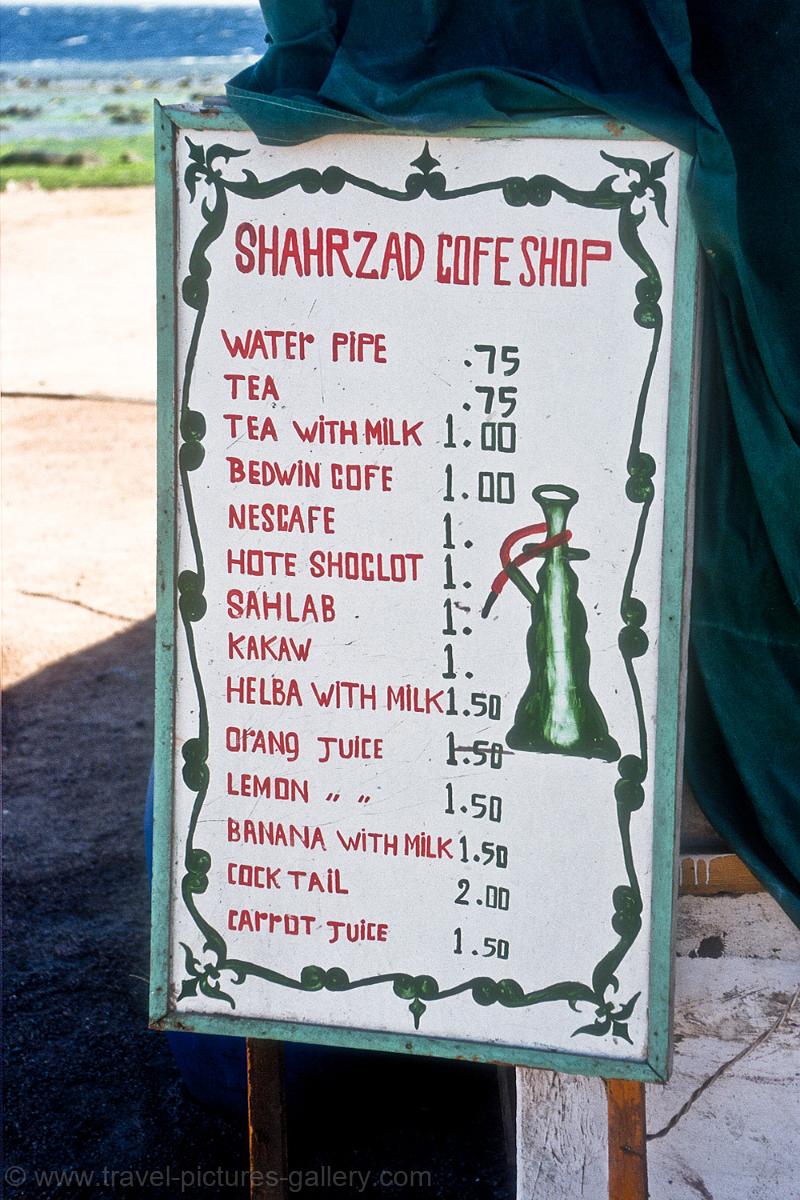 SHAHRZAD COFE SHOP
WATER PIPE .75
TEA .75
TEA WITH MILK 1.00
BEDWIN COFE 1.00
NESCAFE 1.
HOTE SHOCLOT 1.
SAHLAB 1.
KAKAW 1.
HELBA WITH MILK 1.50
ORANG JUICE 1.50
LEMON " " 1.50
BANANA WITH MILK 1.50
COCK TAIL 2.00
CARROT JUICE 1.50
© www.travel-pictures-gallery.com